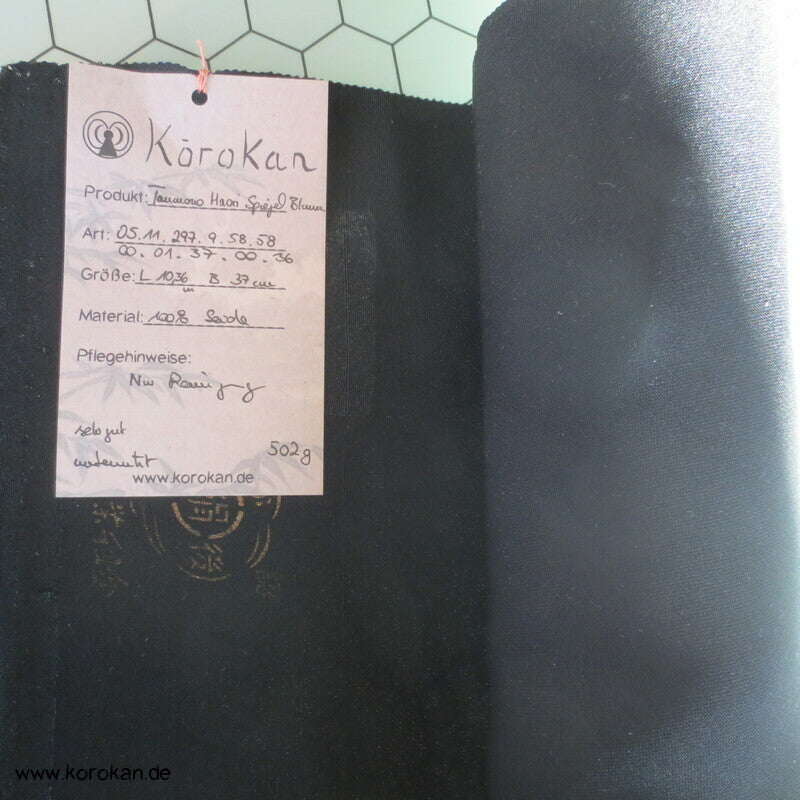 Kōrokan
Produkt: Tanmono Haori Spiegel Blumen
Art: 05.11.297.9.58.58
00.01.37.00.36
Größe: L 10,36 m B 37 cm
Material: 100% Seide
Pflegehinweise:
Nur Reinigung
sehr gut
unbenutzt
502g
www.korokan.de
www.korokan.de